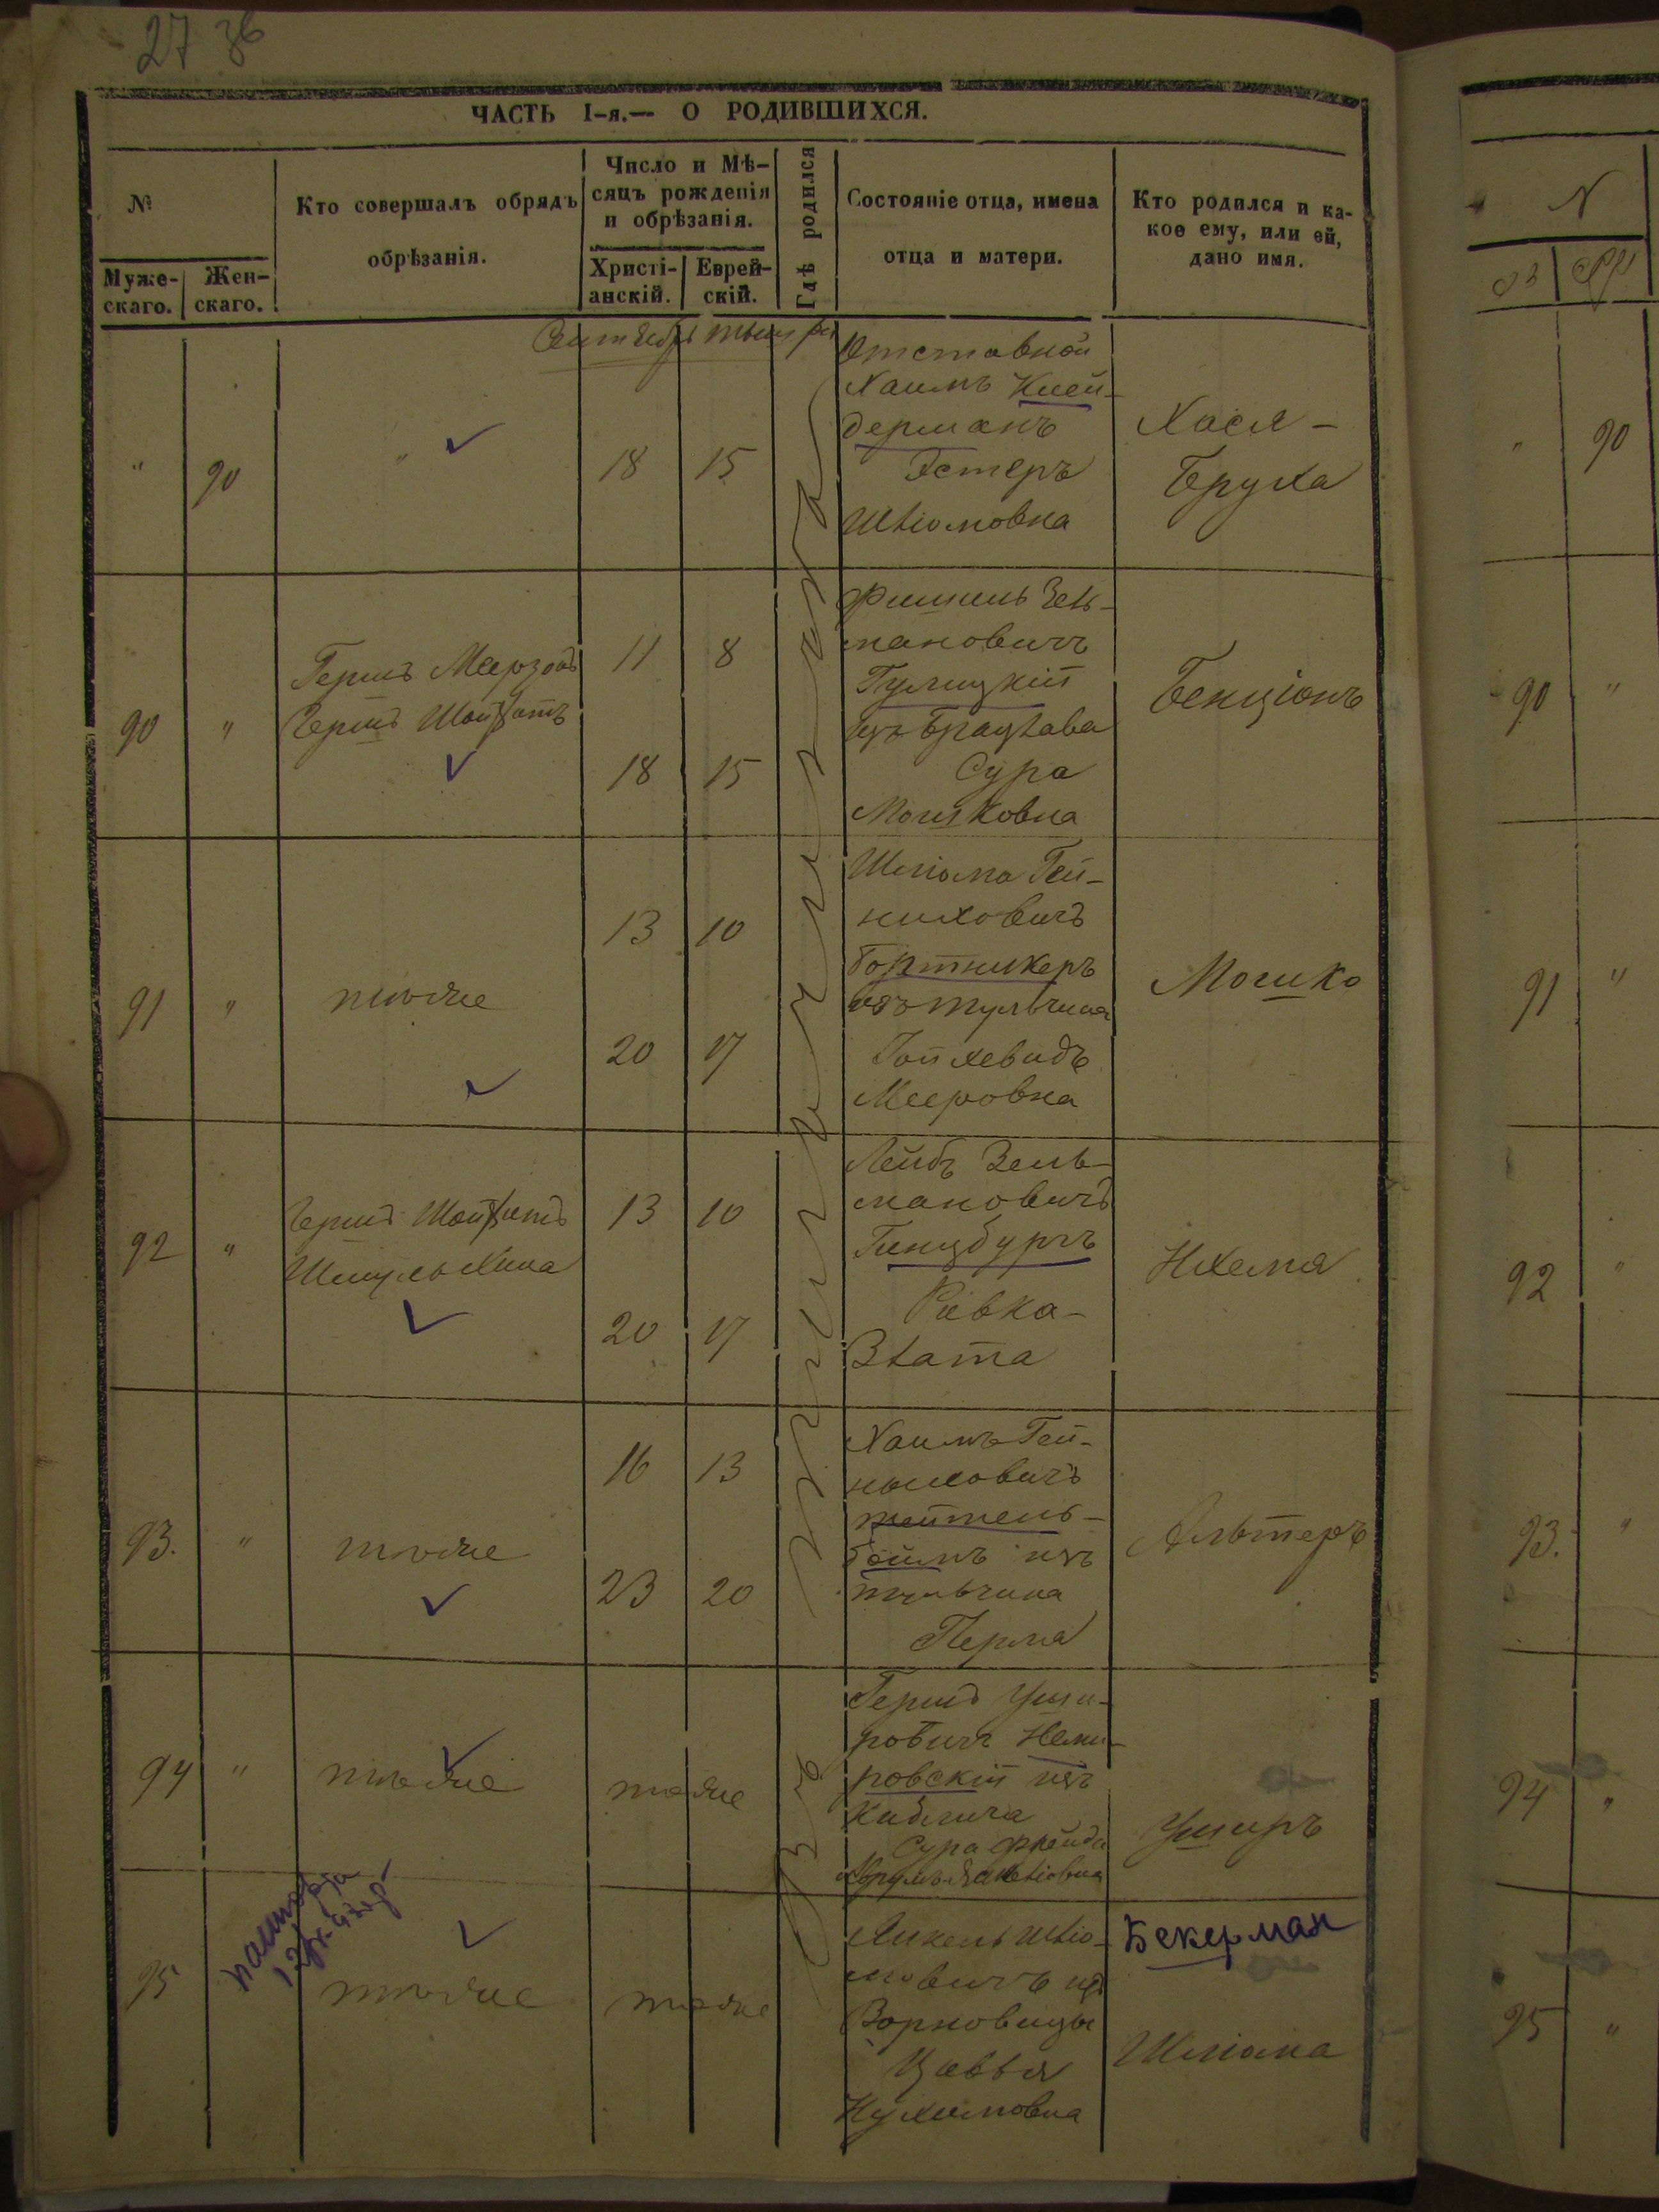 27 зв
ЧАСТЬ I-я.— О РОДИВШИХСЯ.
№
Муже-
скаго.
Жен-
скаго.
Кто совершалъ обрядъ
обрѣзанія.
Число и Мѣ-
сяцъ рожденія
и обрѣзанія.
Христі-
анскій.
Еврей-
скій.
Гдѣ родился
Состояніе отца, имена
отца и матери.
Кто родился и ка-
кое ему, или ей,
дано имя.
Сентябрь
" 90 " 18 15
Отставной
Хаимъ Клей-
дерманъ
Эстеръ
Шліомовна
Хася-
Бруха
90 "
Гершъ Меерзонъ
Гершъ
11 8
18 15
Фишель Зель-
мановичъ
Гулицкій
изъ Брацлава
Сура
Мошковна
Бенціонъ
91 "
тоже
13 10
20 17
Шліома Гей-
ниховичъ
Бортникеръ
изъ Тульчина
Мееровна
Мошко
92 "
Гершъ
13 10
20 17
Лейбъ Зель-
мановичъ
Гинцбургъ
Ривка-
Злата
Нхемя
93. "
тоже
16 13
23 20
Хаимъ Гей-
ныховичъ
Тейтель-
боймъ изъ
Тульчина
Перля
Альтеръ
94 "
тоже
тоже
Гершъ Уши-
ровичъ Неми-
ровскій изъ
Киблича
Сура Фрейда
Уширъ
95
тоже
тоже
Янкель Шліо-
мовичъ изъ
Вороновицы
Цввья
Нухимовна
Бекерман
Шліома
№
90
90 "
91 "
92 "
93. "
94 "
95 "